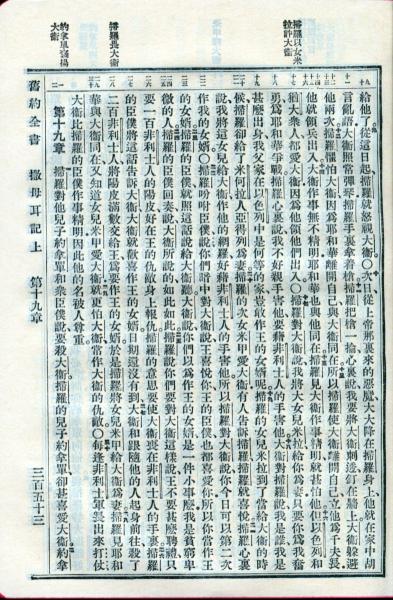 掃羅以女米
拉許大衞
掃羅畏大衞
約拿單爲揚
大衞
給他了從這日起掃羅就怒視大衞〇次日從上帝那裏來的惡魔大大降在掃羅身上他就在家中胡
言亂語大衞照常彈琴掃羅手裏拿着槍掃羅把槍一掄心裏說我要將大衞刺透釘在牆上大衞躲避
他兩次掃羅懼怕大衞因爲耶和華離開自己與大衞同在所以掃羅使大衞離開自己立他爲千夫長
他就領兵出入大衞作事無不精明耶和華也與他同在掃羅見大衞作事精明就甚怕他但以色列和
猶大衆人都愛大衞因爲他領他們出入〇掃羅對大衞說我將大女兒米拉給你爲妻只要你爲我奮
勇爲耶和華爭戰掃羅心裏說我不好親手害他要藉非利士人的手害他大衞對掃羅說我是誰我是
甚麽出身我父家在以色列中是何等的家豈敢作王的女婿呢掃羅的女兒米拉到了當給大衞的時
候掃羅卻給了米何拉人亞得列爲妻掃羅的次女米甲愛大衞有人告訴掃羅掃羅就喜悅掃羅心裏
說我將這女兒給大衞作他的網羅好藉非利士人的手害他所以掃羅對大衞說你今日可以第二次
作我的女婿〇掃羅吩咐臣僕說你們暗中對大衞說王喜悅你王的臣僕也都喜愛你所以你當作王
的女婿掃羅的臣僕就照這話說給大衞聽大衞說你們以爲作王的女婿是一件小事麽我是貧窮卑
微的人掃羅的臣僕回奏說大衞所說的如此如此掃羅說你們要對大衞這樣說王不要甚麽聘禮只
要一百非利士人的陽皮好在王的仇敵身上報仇掃羅的意思要使大衞喪在非利士人的手裏掃羅
的臣僕將這話告訴大衞大衞就歡喜作王的女婿日期還沒有到大衞和跟隨他的人起身前往殺了
二百非利士人將陽皮滿數交給王爲要作王的女婿於是掃羅將女兒米甲給大衞爲妻掃羅見耶和
華與大衞同在又知道女兒米甲愛大衞就更怕大衞常作大衞的仇敵〇每逢非利士軍長出來打仗
大衞比掃羅的臣僕作事精明因此他的名被人尊重
第十九章 掃羅對他兒子約拿單和衆臣僕說要殺大衞掃羅的兒子約拿單卻甚喜愛大衞約拿
舊約全書 撒母耳記上 第十九章 三百五十三